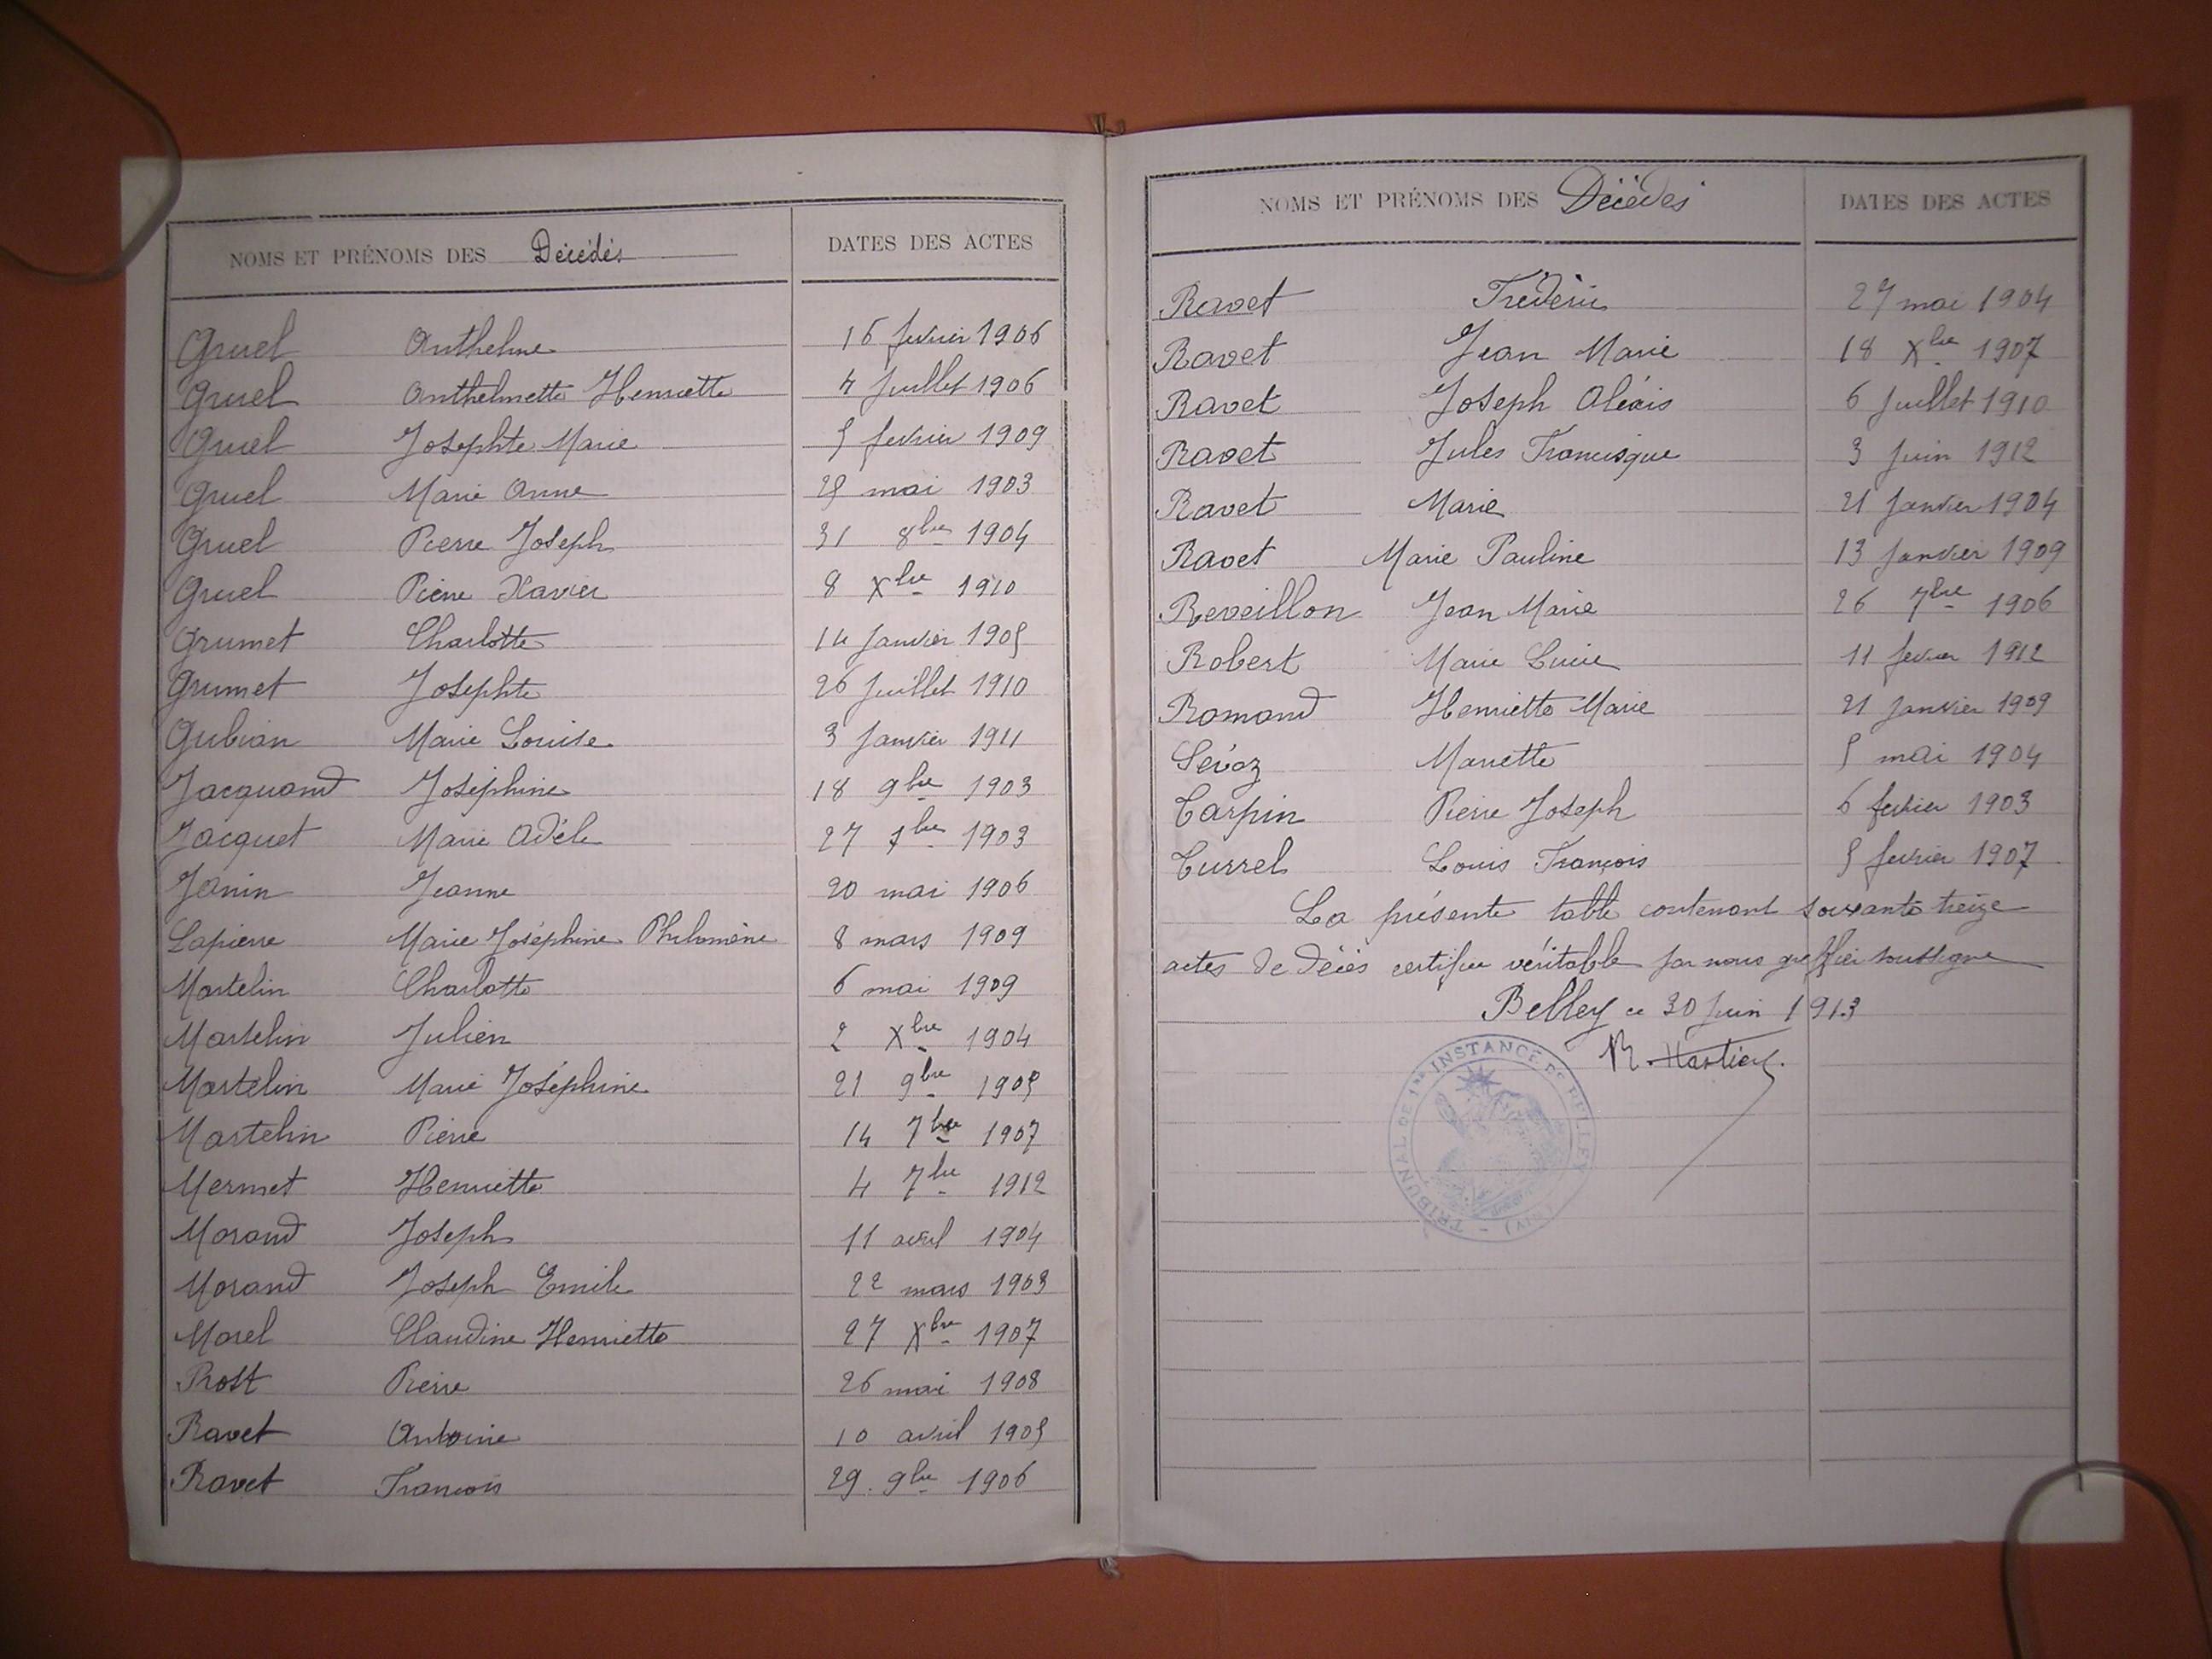 NOMS ET PRÉNOMS DES Décédés DATES DES ACTES
Gruel Anthelme 16 fevrier 1906
Gruel Anthelmette Henriette 4 Juillet 1906
Gruel Josephte Marie 5 fevrier 1909
Gruel Marie Anne 25 mai 1903
Gruel Pierre Joseph 31 8bre 1904
Gruel Pierre Xavier 8 Xbre 1910
Grumet Charlotte 14 Janvier 1905
Grumet Josephte 26 Juillet 1910
Gubian Marie Louise 3 Janvier 1911
Jacquand Joséphine 18 9bre 1903
Jacquet Marie Adèle 27 bre 1903
Janin Jeanne 20 mai 1906
Lapierre Marie Joséphine Philomène 8 mars 1909
Martelin Charlotte 6 mai 1909
Martelin Julien 2 Xbre 1904
Martelin Marie Joséphine 21 9bre 1905
Martelin Pierre 14 7bre 1907
Mermet Henriette 4 7bre 1912
Morand Joseph 11 avril 1904
Morand Joseph Emile 22 mars 1903
Morel Claudine Henriette 27 Xbre 1907
Prost Pierre 26 mai 1908
Ravet Antoine 10 avril 1905
Ravet François 29 9bre 1906
NOMS ET PRÉNOMS DES Décédés DATES DES ACTES
Ravet Frédéric 27 mai 1904
Ravet Jean Marie 18 Xbre 1907
Ravet Joseph Alexis 6 Juillet 1910
Ravet Jules Francisque 3 Juin 1912
Ravet Marie 21 Janvier 1904
Ravet Marie Pauline 13 Janvier 1909
Reveillon Jean Marie 26 7bre 1906
Robert Marie Lucie 11 fevrier 1912
Romand Henriette Marie 21 Janvier 1909
Sévoz Mariette 5 mai 1904
Tarpin Pierre Joseph 6 fevrier 1903
Turrel Louis François 5 fevrier 1907
La présente table contenant soixante treize
actes de décès certifiée véritable par nous greffier soussigné
Belley ce 30 Juin 1913
TRIBUNAL DE 1re INSTANCE DE BELLEY (AIN)